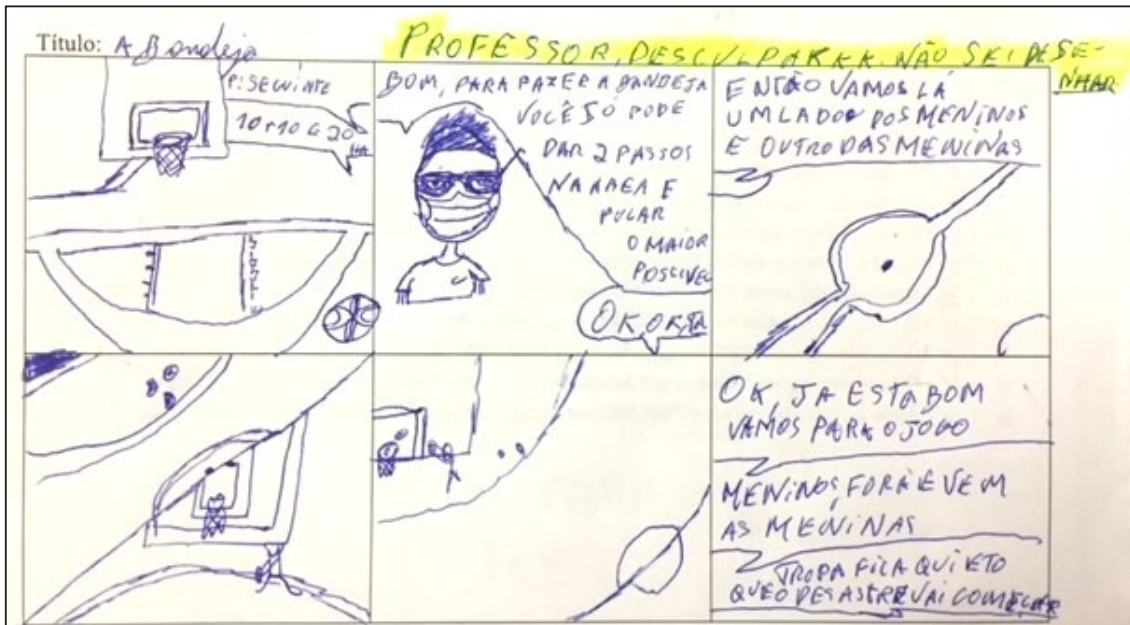 Título: A Bandeja
PROFESSOR, DESCULPAKKK NÃO SEI DESE-
NHAR
P: SEUINTE
10+10 É 20
BOM, PARA FAZER A BANDEJA
VOCÊ SÓ PODE
DAR 2 PASSOS
NA AREA E
PULAR
O MAIOR
POSCIVEL
OK, OK, TA
ENTÃO VAMOS LÁ
UM LADO DOS MENINOS
E OUTRO DAS MENINAS
OK, JA ESTÁ BOM
VAMOS PARA O JOGO
MENINOS, FORA E VEM
AS MENINAS
TROPA FICA QUIETO
QUE O DESASTRE VAI COMEÇAR